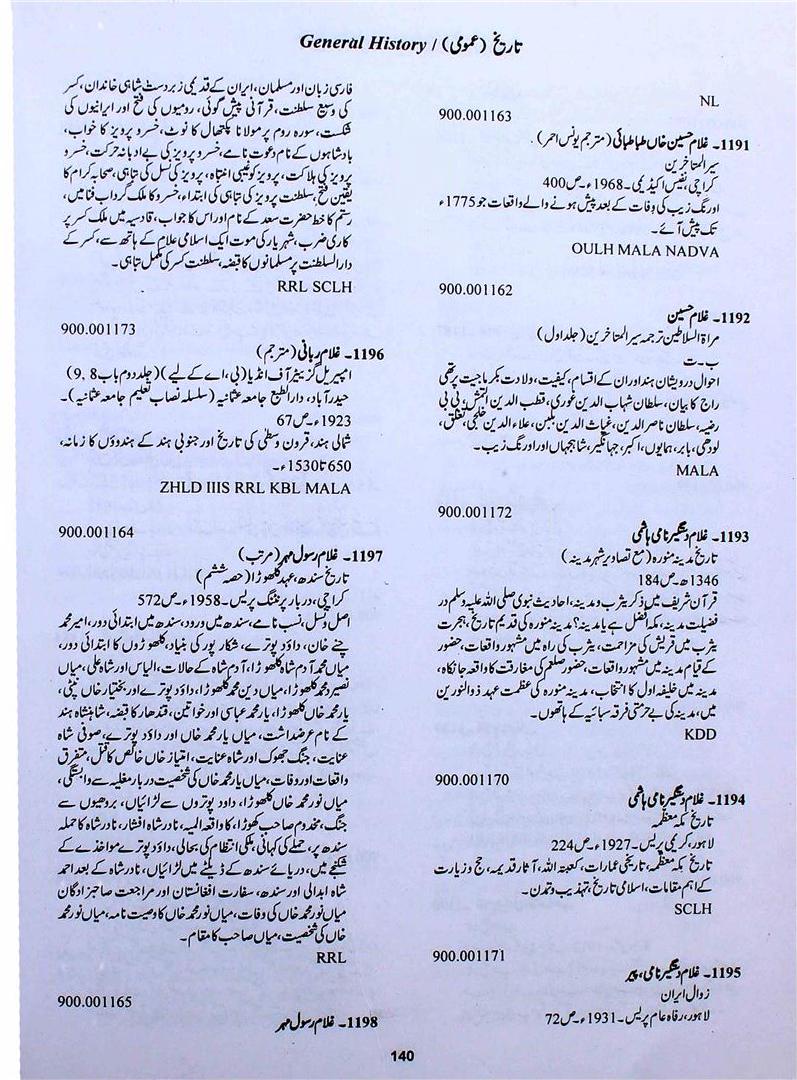 General History / تاریخ (عمومی)
NL
900.001163
1191۔ غلام حسین خاں طباطبائی (مترجم یونس احمر)
سیر المتاخرین
کراچی، نفیس اکیڈیمی۔ 1968ء۔ ص 400
اورنگ زیب کی وفات کے بعد پیش ہونے والے واقعات جو 1775ء
تک پیش آئے۔
OULH MALA NADVA
900.001162
1192۔ غلام حسین
مراۃ السلاطین ترجمہ سیر المتاخرین (جلد اول)
ب۔ ت
احوال درویشان ہند اور ان کے اقسام، کیفیت، ولادت بکرماجیت پرتھی
راج کا بیان، سلطان شہاب الدین غوری، قطب الدین التمش، بی بی
رضیہ، سلطان ناصر الدین، غیاث الدین بلبن، علاء الدین خلجی، تغلق،
لودھی، بابر، ہمایوں، اکبر، جہانگیر، شاہجہاں اور اورنگ زیب۔
MALA
900.001172
1193۔ غلام دستگیر نامی ہاشمی
تاریخ مدینہ منورہ (مع تصاویر شہر مدینہ)
1346ھ۔ ص 184
قرآن شریف میں ذکر یثرب و مدینہ، احادیث نبوی صلی اللہ علیہ وسلم در
فضیلت مدینہ، مکہ افضل ہے یا مدینہ؟ مدینہ منورہ کی قدیم تاریخ، ہجرت
یثرب میں قریش کی مزاحمت، یثرب کی راہ میں مشہور واقعات، حضور
کے قیام مدینہ میں مشہور واقعات، حضور صلعم کی مفارقت کا واقعہ جانکاہ،
مدینہ میں خلیفہ اول کا انتخاب، مدینہ منورہ کی عظمت عہد ذوالنورین
میں، مدینہ کی بے حرمتی فرقہ سبائیہ کے ہاتھوں۔
KDD
900.001170
1194۔ غلام دستگیر نامی ہاشمی
تاریخ مکہ معظمہ
لاہور، کریمی پریس۔ 1927ء۔ ص 224
تاریخ مکہ معظمہ، تاریخی عمارات، کعبۃ اللہ، آثار قدیمہ، حج و زیارت
کے اہم مقامات، اسلامی تاریخ، تہذیب و تمدن۔
SCLH
900.001171
1195۔ غلام دستگیر نامی، پیر
زوال ایران
لاہور، رفاہ عام پریس۔ 1931ء۔ ص 72
فارسی زبان اور مسلمان، ایران کے قدیمی زبردست شاہی خاندان، کسر
کی وسیع سلطنت، قرآنی پیش گوئی، رومیوں کی فتح اور ایرانیوں کی
شکست، سورہ روم پر مولانا پکتھال کا نوٹ، خسرو پرویز کا خواب،
بادشاہوں کے نام دعوت نامے، خسرو پرویز کی بے ادبانہ حرکت، خسرو
پرویز کی ہلاکت، پرویز کو غیبی انتباہ، پرویز کی نسل کی تباہی، صحابہ کرام کا
یقین فتح، سلطنت پرویز کی تباہی کی ابتداء، خسرو کا ملک گرداب فنا میں،
رستم کا خط حضرت سعد کے نام اور اس کا جواب، قادسیہ میں ملک کسر پر
کاری ضرب، شہریار کی موت ایک اسلامی غلام کے ہاتھ سے، کسر کے
دار السلطنت پر مسلمانوں کا قبضہ، سلطنت کسر کی مکمل تباہی۔
RRL SCLH
900.001173
1196۔ غلام ربانی (مترجم)
امپیریل گزیٹیر آف انڈیا (بی، اے کے لیے) (جلد دوم باب 8, 9)
حیدرآباد، دارالطبع جامعہ عثمانیہ (سلسلہ نصاب تعلیم جامعہ عثمانیہ)۔
1923ء۔ ص 67
شمالی ہند، قرون وسطٰی کی تاریخ اور جنوبی ہند کے ہندوؤں کا زمانہ،
650 تا 1530ء۔
ZHLD IIIS RRL KBL MALA
900.001164
1197۔ غلام رسول مہر (مرتب)
تاریخ سندھ، عہد کلھوڑا (حصہ ششم)
کراچی، دربار پرنٹنگ پریس۔ 1958ء۔ ص 572
اصل و نسل، نسب نامے، سندھ میں ورود، سندھ میں ابتدائی دور، امیر محمد
چنے خان، داؤد پوترے، شکار پور کی بنیاد، کلھوڑوں کا ابتدائی دور،
میاں محمد آدم شاہ کلھوڑا، آدم شاہ کے حالات، الیاس اور شاہ علی، میاں
نصیر محمد کلھوڑا، میاں دین محمد کلھوڑا، داؤد پوترے اور بختیار خاں پنی،
یار محمد خاں کلھوڑا، یار محمد عباسی اور خواتین، قندھار کا قبضہ، شاہنشاہ ہند
کے نام عرضداشت، میاں یار محمد خاں اور داؤد پوترے، صوفی شاہ
عنایت، جنگ جھوک اور شاہ عنایت، امتیاز خاں خالص کا قتل، متفرق
واقعات اور وفات، میاں یار محمد خاں کی شخصیت دربار مغلیہ سے وابستگی،
میاں نور محمد خاں کلھوڑا، داود پوتروں سے لڑائیاں، بروھیوں سے
جنگ، مخدوم صاحب کھوڑا، کا واقعہ المیہ، نادر شاہ افشار، نادر شاہ کا حملہ
سندھ پر، حملے کی کہانی، ملکی انتظام کی بحالی، داؤد پوترے مواخذے کے
شکنجے میں، دریائے سندھ کے ڈیلٹے میں لڑائیاں، نادر شاہ کے بعد احمد
شاہ ابدالی اور سندھ، سفارت افغانستان اور مراجعت صاحبزادگان
میاں نور محمد خاں کی وفات، میاں نور محمد خاں کا وصیت نامہ، میاں نور محمد
خاں کی شخصیت، میاں صاحب کا مقام۔
RRL
900.001165
1198۔ غلام رسول مہر
140